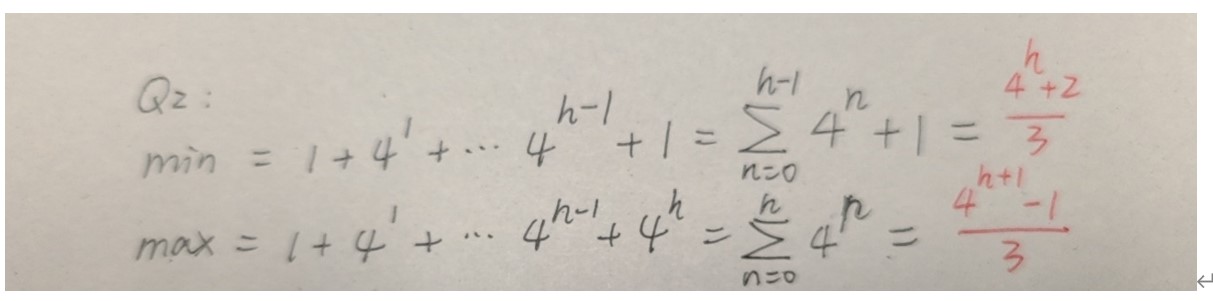 Q2:
min = 1 + 4^1 + ... 4^{h-1} + 1 = \sum_{n=0}^{h-1} 4^n + 1 = \frac{4^h+2}{3}
max = 1 + 4^1 + ... 4^{h-1} + 4^h = \sum_{n=0}^{h} 4^n = \frac{4^{h+1}-1}{3}